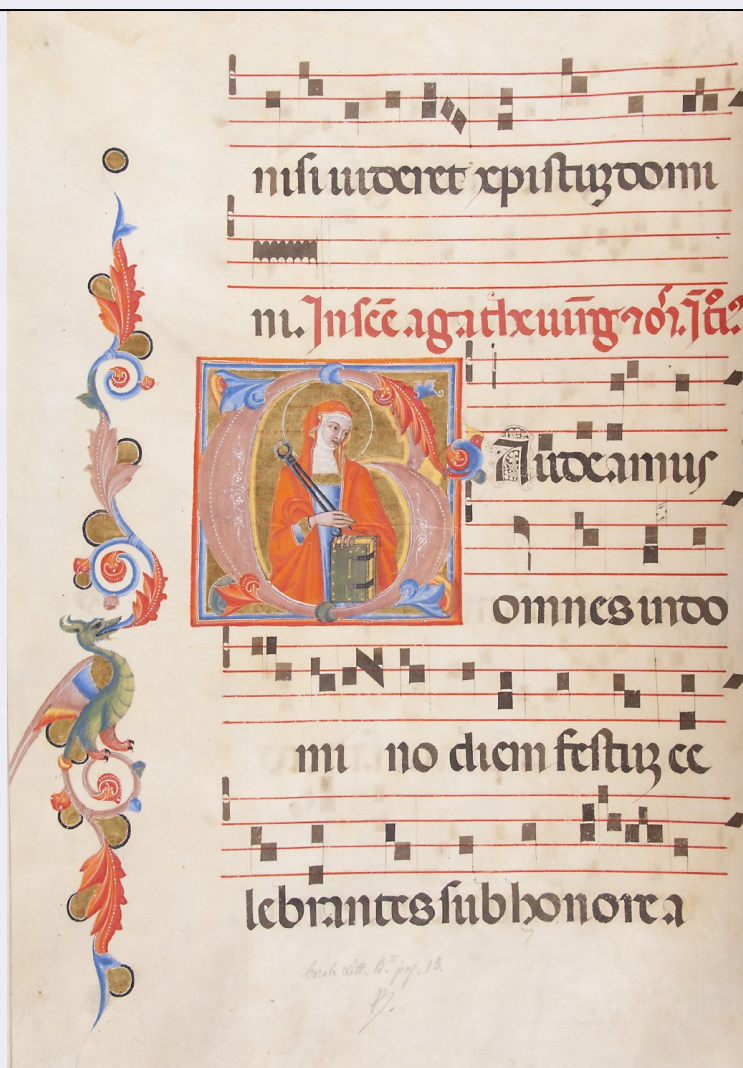 nisi uideret xpistuz domi
ni. In scē agathe uirg
Gaudeamus
omnes in do
mi no diem festuz ce
lebrantes sub honore a
pag. 13.